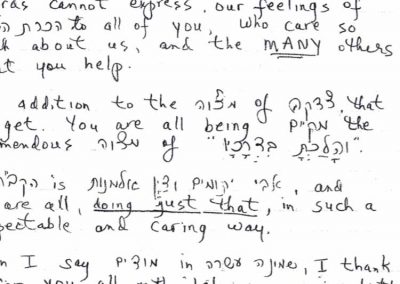 rds cannot express, our feelings of
הכרת ה to all of you, who care so
h about us, and the MANY others
t you help.
addition to the מצוה of צדקה, that
get. You are all being מקיים the
mendous מצוה of "והלכת בדרכיו"
הקב"ה is אבי יתומים ודיין אלמנות, and
are all, doing just that, in such a
pectable and caring way.
n I say מודים in שמונה עשרה, I thank